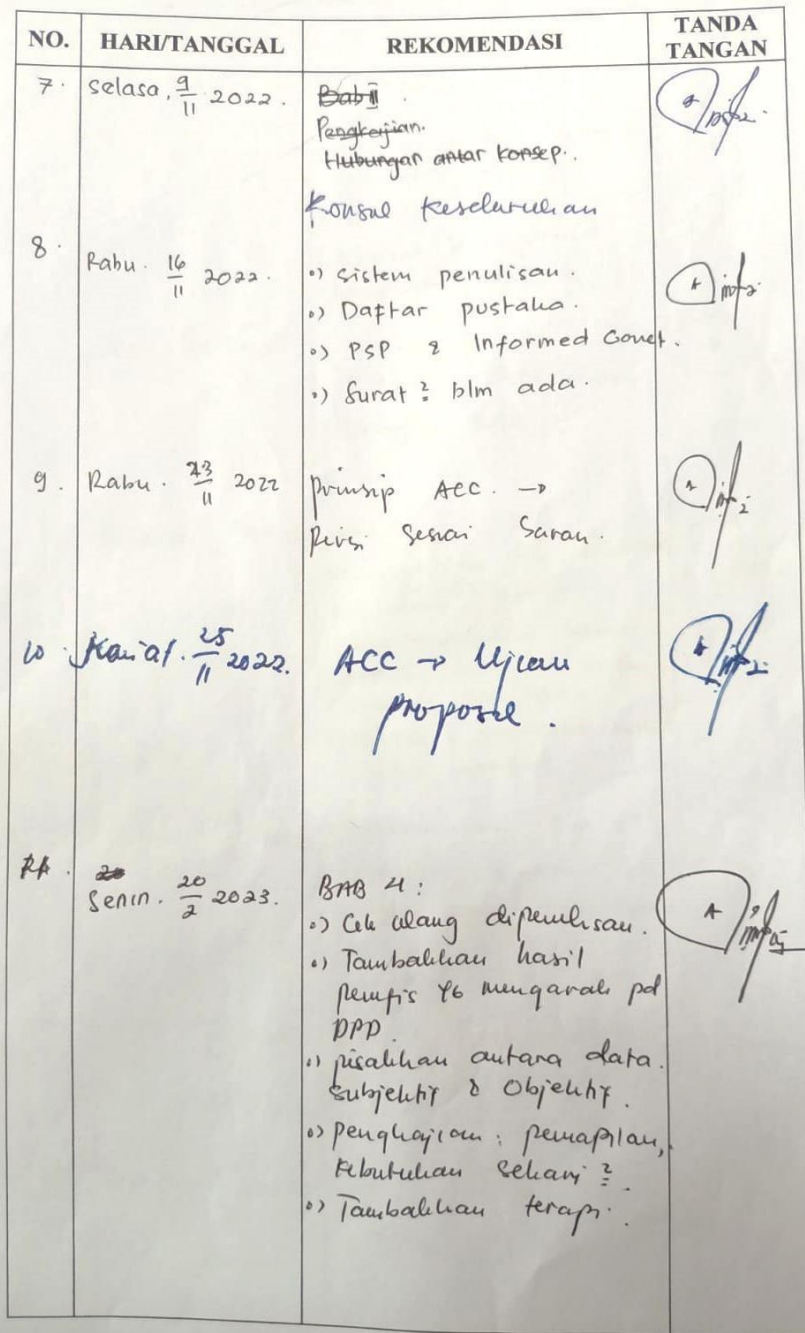 NO. HARI/TANGGAL REKOMENDASI TANDA TANGAN
7. Selasa, 9/11 2022. Bab II.
Pengkajian.
Hubungan antar konsep.
Konsul keseluruhan
8.
Rabu. 16/11 2022. •) Sistem penulisan.
•) Daftar pustaka.
•) PSP & Informed
•) Surat ² blm ada.
9. Rabu. 23/11 2022 Prinsip ACC. →
Revisi sesuai saran.
10. 25/11 2022. ACC → Ujian
proposal.
20
Senin. 20/2 2023. BAB 4:
•) Cek ulang dipenulisan.
•) Tambahkan hasil
pemfis yg mengarah pd
DPD
•) pisahkan antara data
Subjektif & Objektif.
•) Pengkajian: penampilan,
kebutuhan sehari ²
•) Tambahkan terapi.